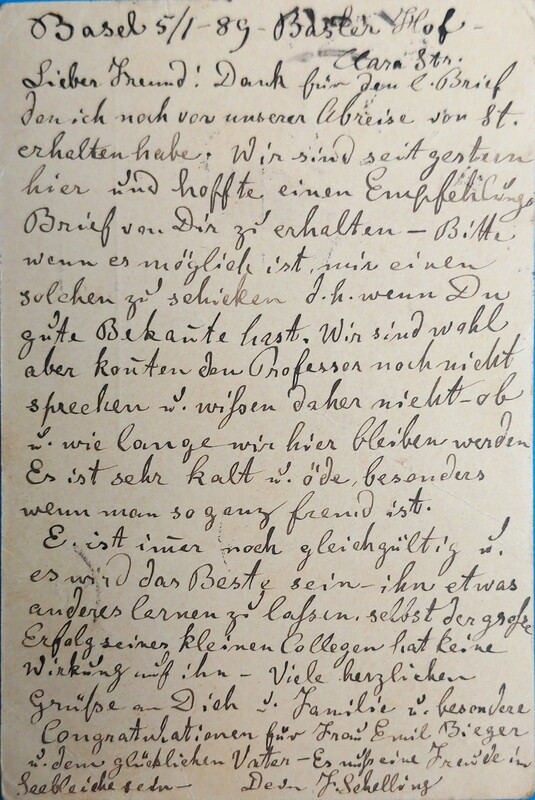 Basel 5/1-89 - Basler Hof -
Clara Str.
Lieber Freund! Dank für den l. Brief
den ich noch vor unserer Abreise von St.
erhalten habe. Wir sind seit gestern
hier und hoffte einen Empfehlungs
Brief von Dir zu erhalten - Bitte
wenn es möglich ist, mir einen
solchen zu schicken d.h. wenn Du
gute Bekan̄te hast. Wir sind wohl
aber kon̄ten den Professor noch nicht
sprechen u. wißen daher nicht - ob
u. wie lange wir hier bleiben werden
Es ist sehr kalt u. öde, besonders
wenn man so ganz fremd ist.
E. ist im̄er noch gleichgültig u.
es wird das Beste sein - ihn etwas
anderes lernen zu laßen, selbst der große
Erfolg seines kleinen Collegen hat keine
Wirkung auf ihn - Viele herzlichen
Grüße an Dich u. Familie u. besondere
Congratulationen für Frau Emil Bieger
u. dem glücklichen Vater - Es muß eine Freude im
Seebleiche sein - Dein J. Schelling